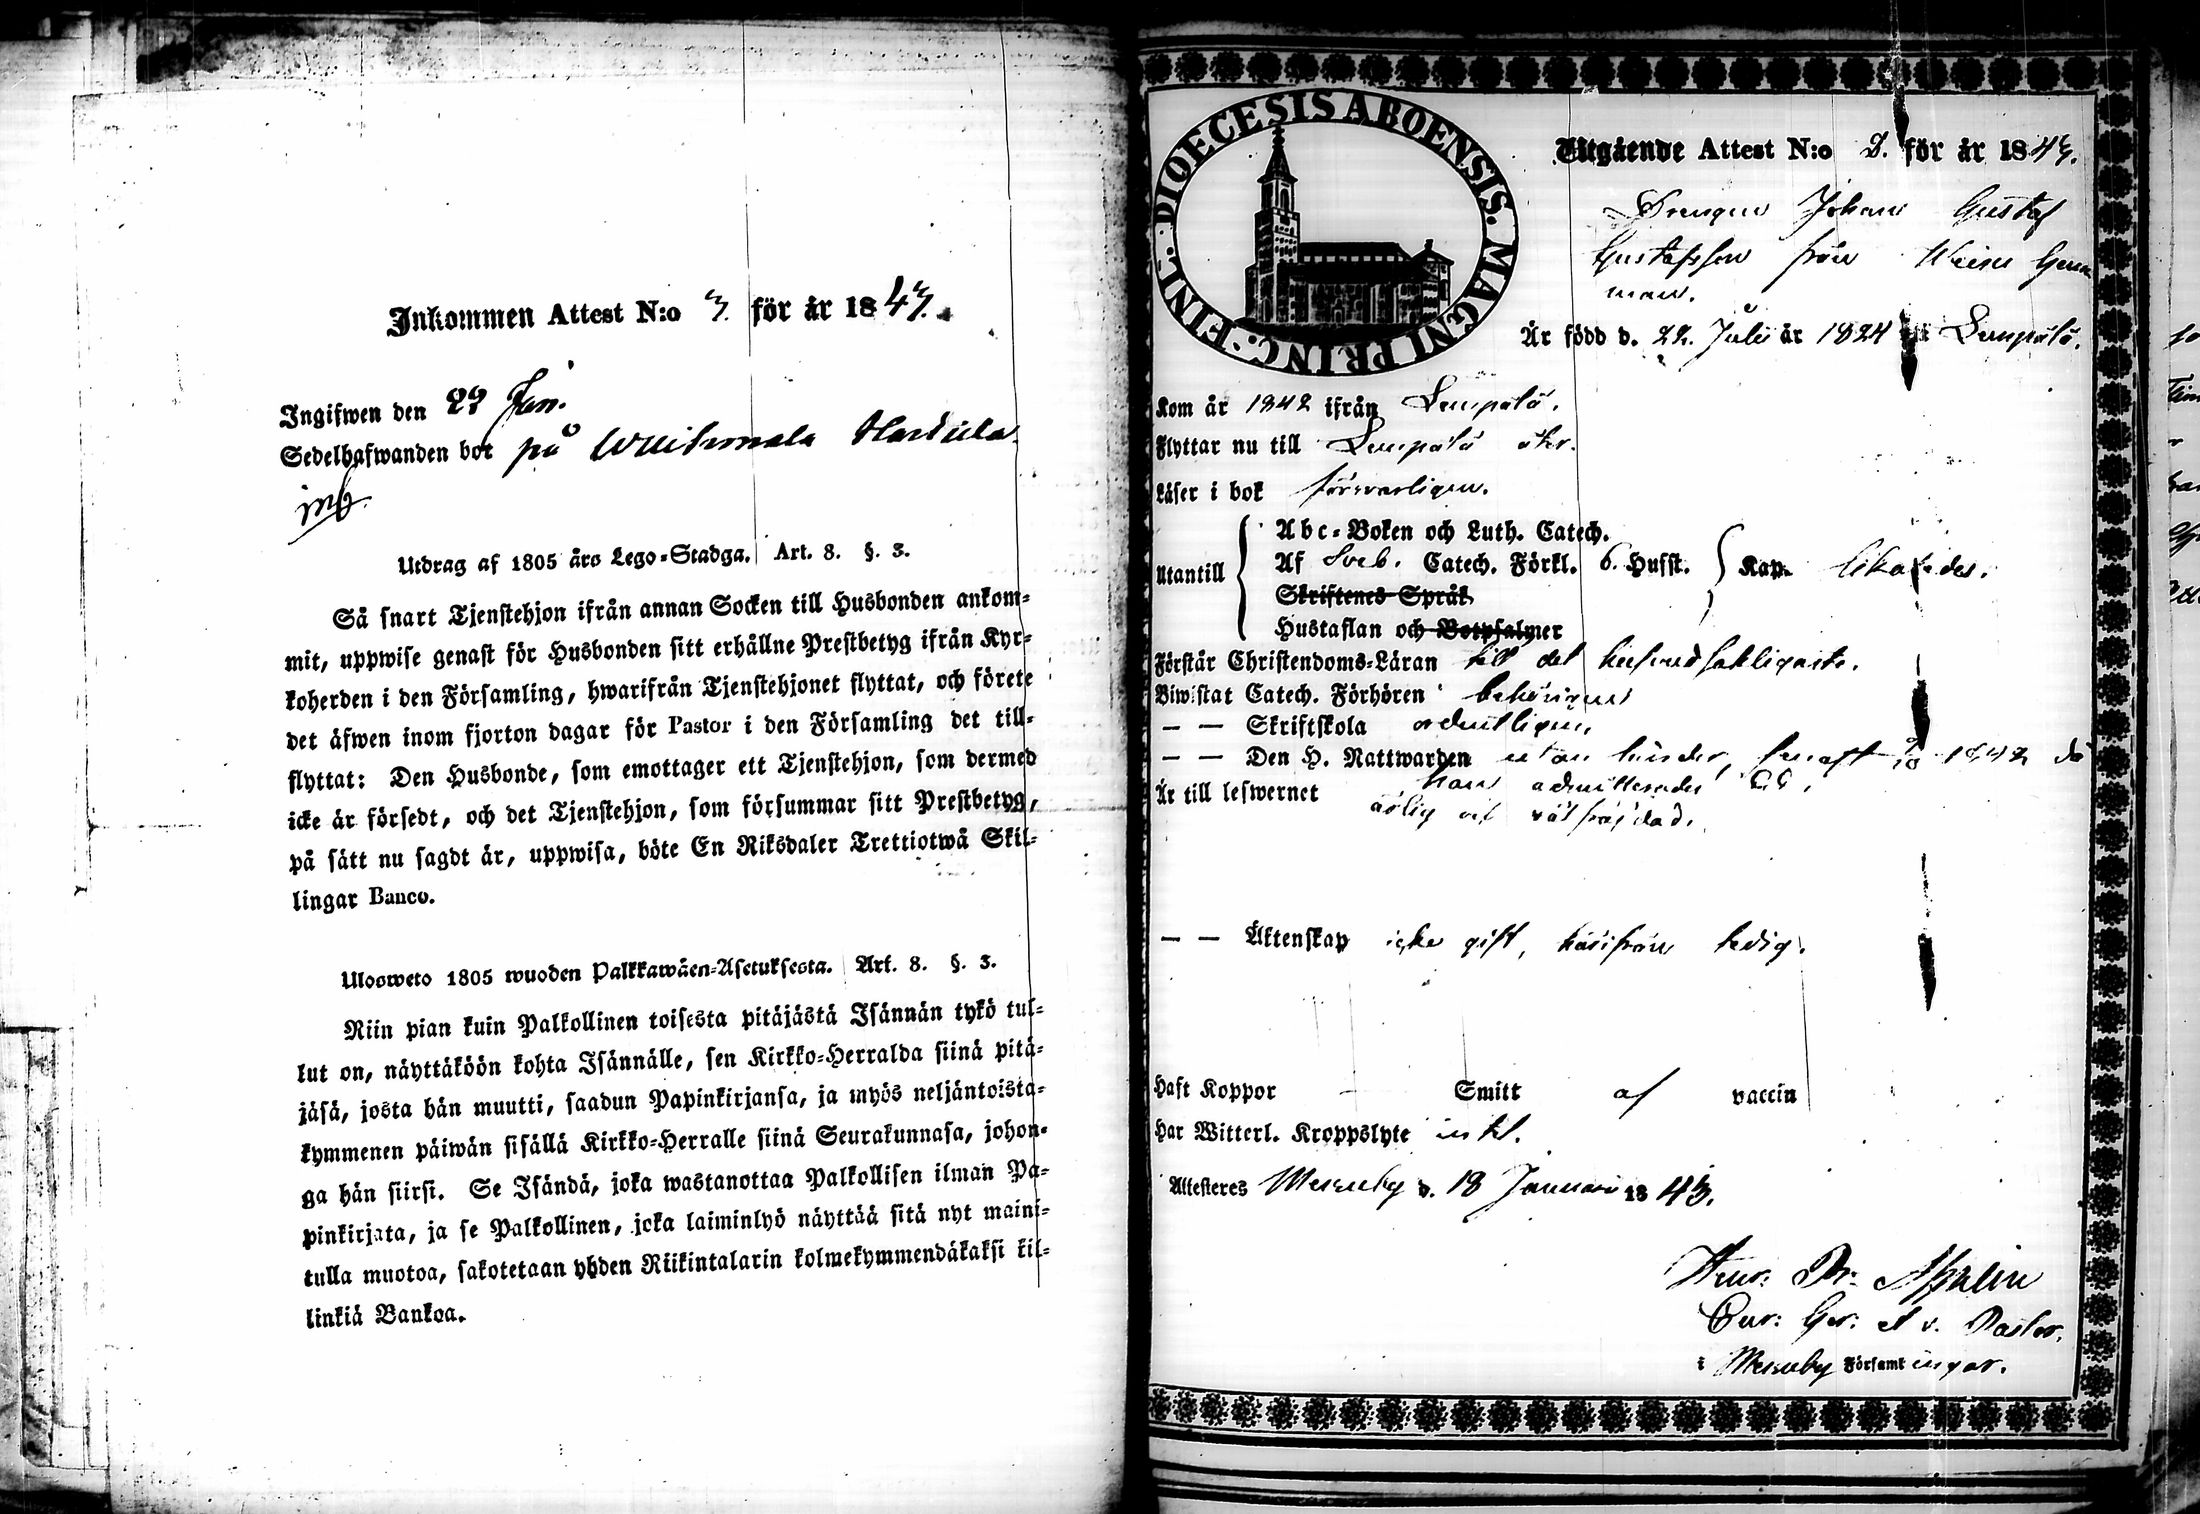 Inkommen Attest N:o 3. för år 1843.
Ingifwen den 22 Jan.
Sedelhafwanden bor på
inh.
Utdrag af 1805 års Lego-Stadga. Art. 8. §. 3.
Så snart Tjenstehjon ifrån annan Socken till Husbonden ankom-
mit, uppwise genast för Husbonden sitt erhållne Prestbetyg ifrån Kyr-
koherden i den Församling, hwarifrån Tjenstehjonet flyttat, och förete
det äfwen inom fjorton dagar för Pastor i den Församling det till-
flyttat: Den Husbonde, som emottager ett Tjenstehjon, som dermed
icke är försedt, och det Tjenstehjon, som försummar sitt Prestbetyg,
på sätt nu sagdt är, uppwisa, böte En Riksdaler Trettiotwå Skil-
lingar Banco.
Ulosweto 1805 wuoden Palkkawäen-Asetuksesta. Art. 8. §. 3.
Niin pian kuin Palkollinen toisesta pitäjästä Isännän tykö tul-
lut on, näyttäköön kohta Isännälle, sen Kirkko-Herralda siinä pitä-
jäsä, josta hän muutti, saadun Papinkirjansa, ja myös neljäntoista-
kymmenen päiwän sisällä Kirkko-Herralle siinä Seurakunnasa, johon-
ga hän siirsi. Se Isändä, joka wastanottaa Palkollisen ilman Pa-
pinkirjata, ja se Palkollinen, joka laiminlyö näyttää sitä nyt maini-
tulla muotoa, sakotetaan yhden Riikintalarin kolmekymmendäkaksi kil-
linkiä Bankoa.
DIOECESIS ABOENSIS. MAGNI PRINC: FINL.
Utgående Attest N:o 2. för år 1843.
Drengen Johan Gustaf
Gustafsson från
man.
Är född d. 22. Julii år 1824 i Lempälä.
Kom år 1842 ifrån Lempälä.
Flyttar nu till Lempälä åter.
Läser i bok försvarligen.
Utantill
Abc-Boken och Luth. Catech.
Af Sveb. Catech. Förkl. 6. Husst. Kap. likaledes.
Skriftenes Språk
Hustaflan och Botpsalmer
Förstår Christendoms-Läran till det hufvudsakligaste.
Biwistat Catech. Förhören behörigen
— — Skriftskola ordentligen,
— — Den H. Nattwarden utan hinder, senast 2/10 1842 då
han admitterades
Är till lefwernet ärlig och välfräjdad.
— — Äktenskap icke gift, härifrån ledig.
Haft Koppor — Smitt af vaccin
Har Witterl. Kroppslyte intet.
Attesteras Messuby d. 18 Januarii 1843.
Henr. Br.
Cur: Ger: et v. Pastor.
i Messuby Församlingar.